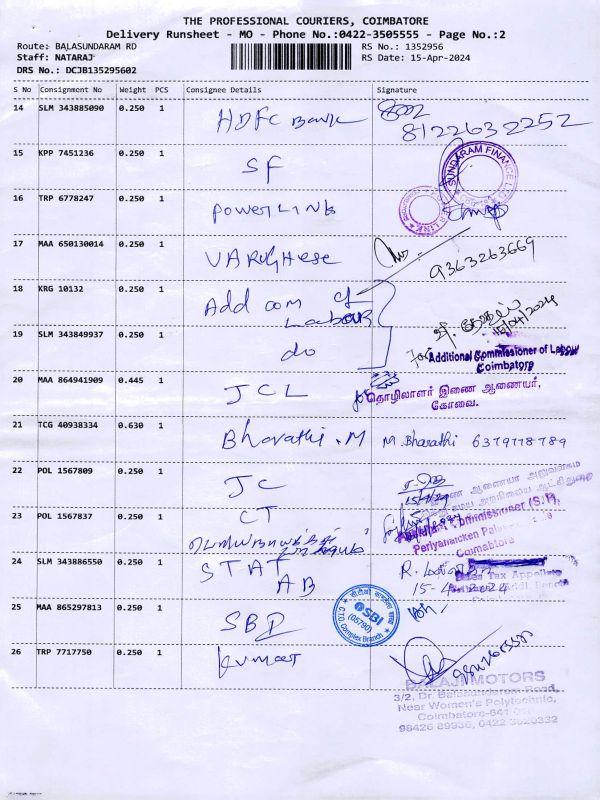 THE PROFESSIONAL COURIERS, COIMBATORE
Delivery Runsheet - MO - Phone No.:0422-3505555 - Page No.:2
Route: BALASUNDARAM RD RS No.: 1352956
Staff: NATARAJ RS Date: 15-Apr-2024
DRS No.: DCJB135295602
S No Consignment No Weight PCS Consignee Details Signature
14 SLM 343885090 0.250 1 HDFC Bank
8122632252
15 KPP 7451236 0.250 1 SF
SUNDARAM FINANCE LTD
16 TRP 6778247 0.250 1 POWERLINK
17 MAA 650130014 0.250 1 VARGHESE 9363263669
18 KRG 10132 0.250 1 Add com of
Labour
15/04/2024
19 SLM 343849937 0.250 1 do
for Additional Commissioner of Labour
Coimbatore
20 MAA 864941909 0.445 1 JCL
தொழிலாளர் இணை ஆணையர்,
கோவை.
21 TCG 40938334 0.630 1 Bharathi.M M. Bharathi 6379778789
22 POL 1567809 0.250 1 JC
23 POL 1567837 0.250 1 CT
Commissioner (S.T)
Coimbatore
24 SLM 343886550 0.250 1 STAT
AB
15-4-2024
Sales Tax Appellate
25 MAA 865297813 0.250 1 SBI
SBI
(05790)
C.T.O. Complex Branch
26 TRP 7717750 0.250 1 Kumar
BALAJI MOTORS
3/2, Dr. Balasundaram Road,
Near Women's Polytechnic,
Coimbatore-641
98426 89936, 0422